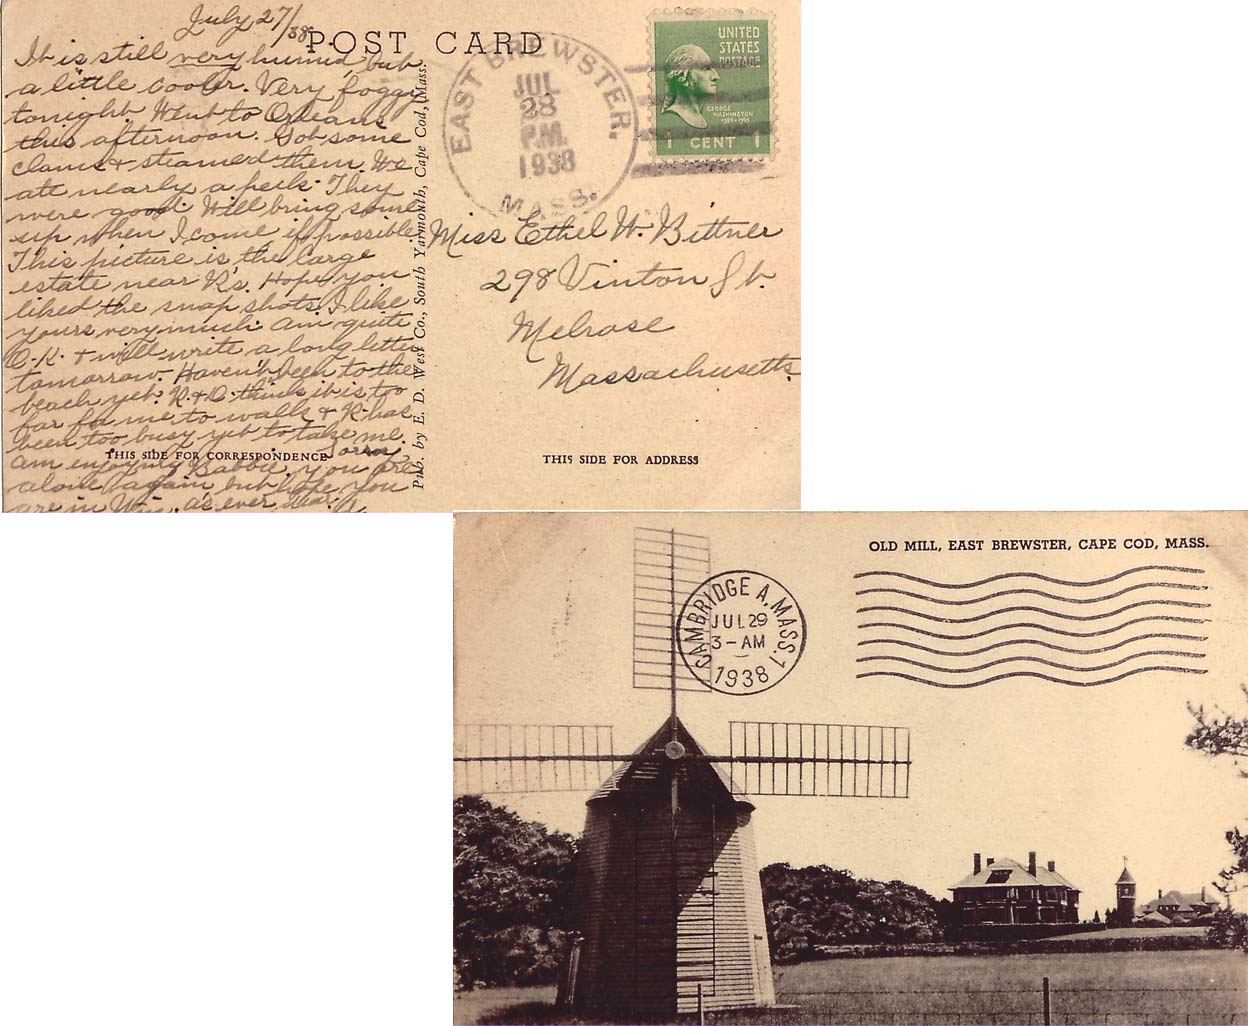 July 27/38
POST CARD
It is still very humid, but
a little cooler. Very foggy
tonight. Went to Orleans
this afternoon. Got some
clams & steamed them. We
ate nearly a peck. They
were good. Will bring some
up when I come if possible
This picture is the large
estate near R's. Hope you
liked the snap shots. I like
yours very much. Am quite
O.K. & will write a long letter
tomorrow. Haven't been to the
beach yet. R & O. think it is too
far for me to walk & R has
been too busy yet to take me.
THIS SIDE FOR CORRESPONDENCE
Am enjoying Babbie. Sorry you are
alone again but hope you
are in as ever dear. A
Pub. by E. D. West Co., South Yarmouth, Cape Cod, Mass.
EAST BREWSTER.
JUL
28
P.M.
1938
MASS.
UNITED
STATES
POSTAGE
GEORGE
WASHINGTON
1789-1797
1 CENT 1
Miss Ethel W. Bittner
298 Vinton St.
Melrose
Massachusetts
THIS SIDE FOR ADDRESS
OLD MILL, EAST BREWSTER, CAPE COD, MASS.
CAMBRIDGE A, MASS. 1
JUL 29
3-AM
1938